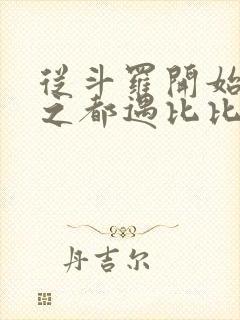 從斗羅開始
之都遇比比
丹吉尔